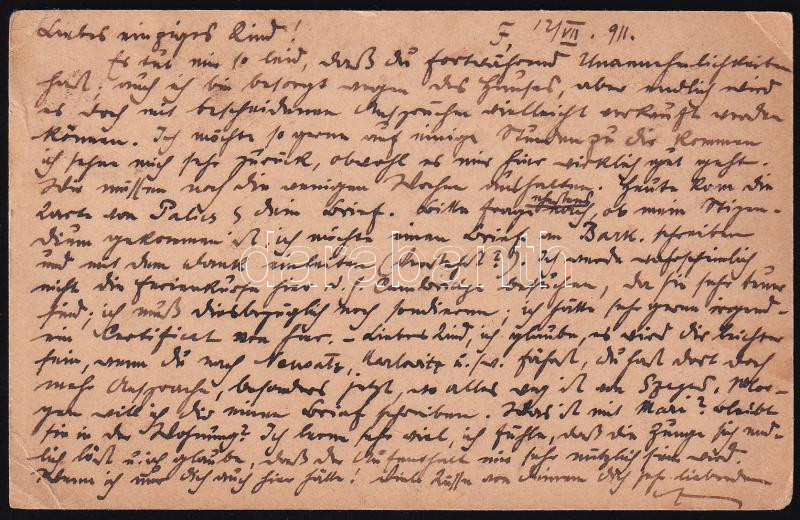 Liebes einziges Kind! F. 12/VII. 911.
Es tut mir so leid, daß du fortwährend Unannehmlichkeiten
hast; auch ich bin besorgt wegen des Hauses, aber endlich wird
es doch mit bescheidenen Ansprüchen vielleicht verkauft werden
können. Ich möchte so gerne auf einige Stunden zu dir kommen
ich sehne mich sehr zurück, obwohl es mir hier wirklich gut geht.
Wir müssen noch die wenigen Wochen aushalten. Heute kam die
Karte von Palics & dein Brief. Bitte frage nach, ob mein Stipen-
dium gekommen ist, ich möchte einen Brief an Bark. schreiben
und mit dem Dank einleiten. Ich werde wahrscheinlich
nicht die Ferienkurse hier u. Cambridge besuchen, da sie sehr teuer
sind; ich muß diesbezüglich noch sondieren; ich hätte sehr gerne irgend-
ein Certificat von hier. – Liebes Kind, ich glaube, es wird dir leichter
sein, wenn du nach Neusatz, Karlowitz u.s.w. fährst, du hast dort doch
mehr Ansprache, besonders jetzt, wo alles weg ist von Szeged. Mor-
gen will ich dir einen Brief schreiben. Was ist mit Mari? Bleibt
sie in der Wohnung? Ich lerne sehr viel, ich fühle, daß die Zunge sich end-
lich löst u. ich glaube, daß der Aufenthalt mir sehr nützlich sein wird.
Wenn ich nur dich auch hier hätte! Viele Küsse von deinem dich sehr liebenden
darabanth